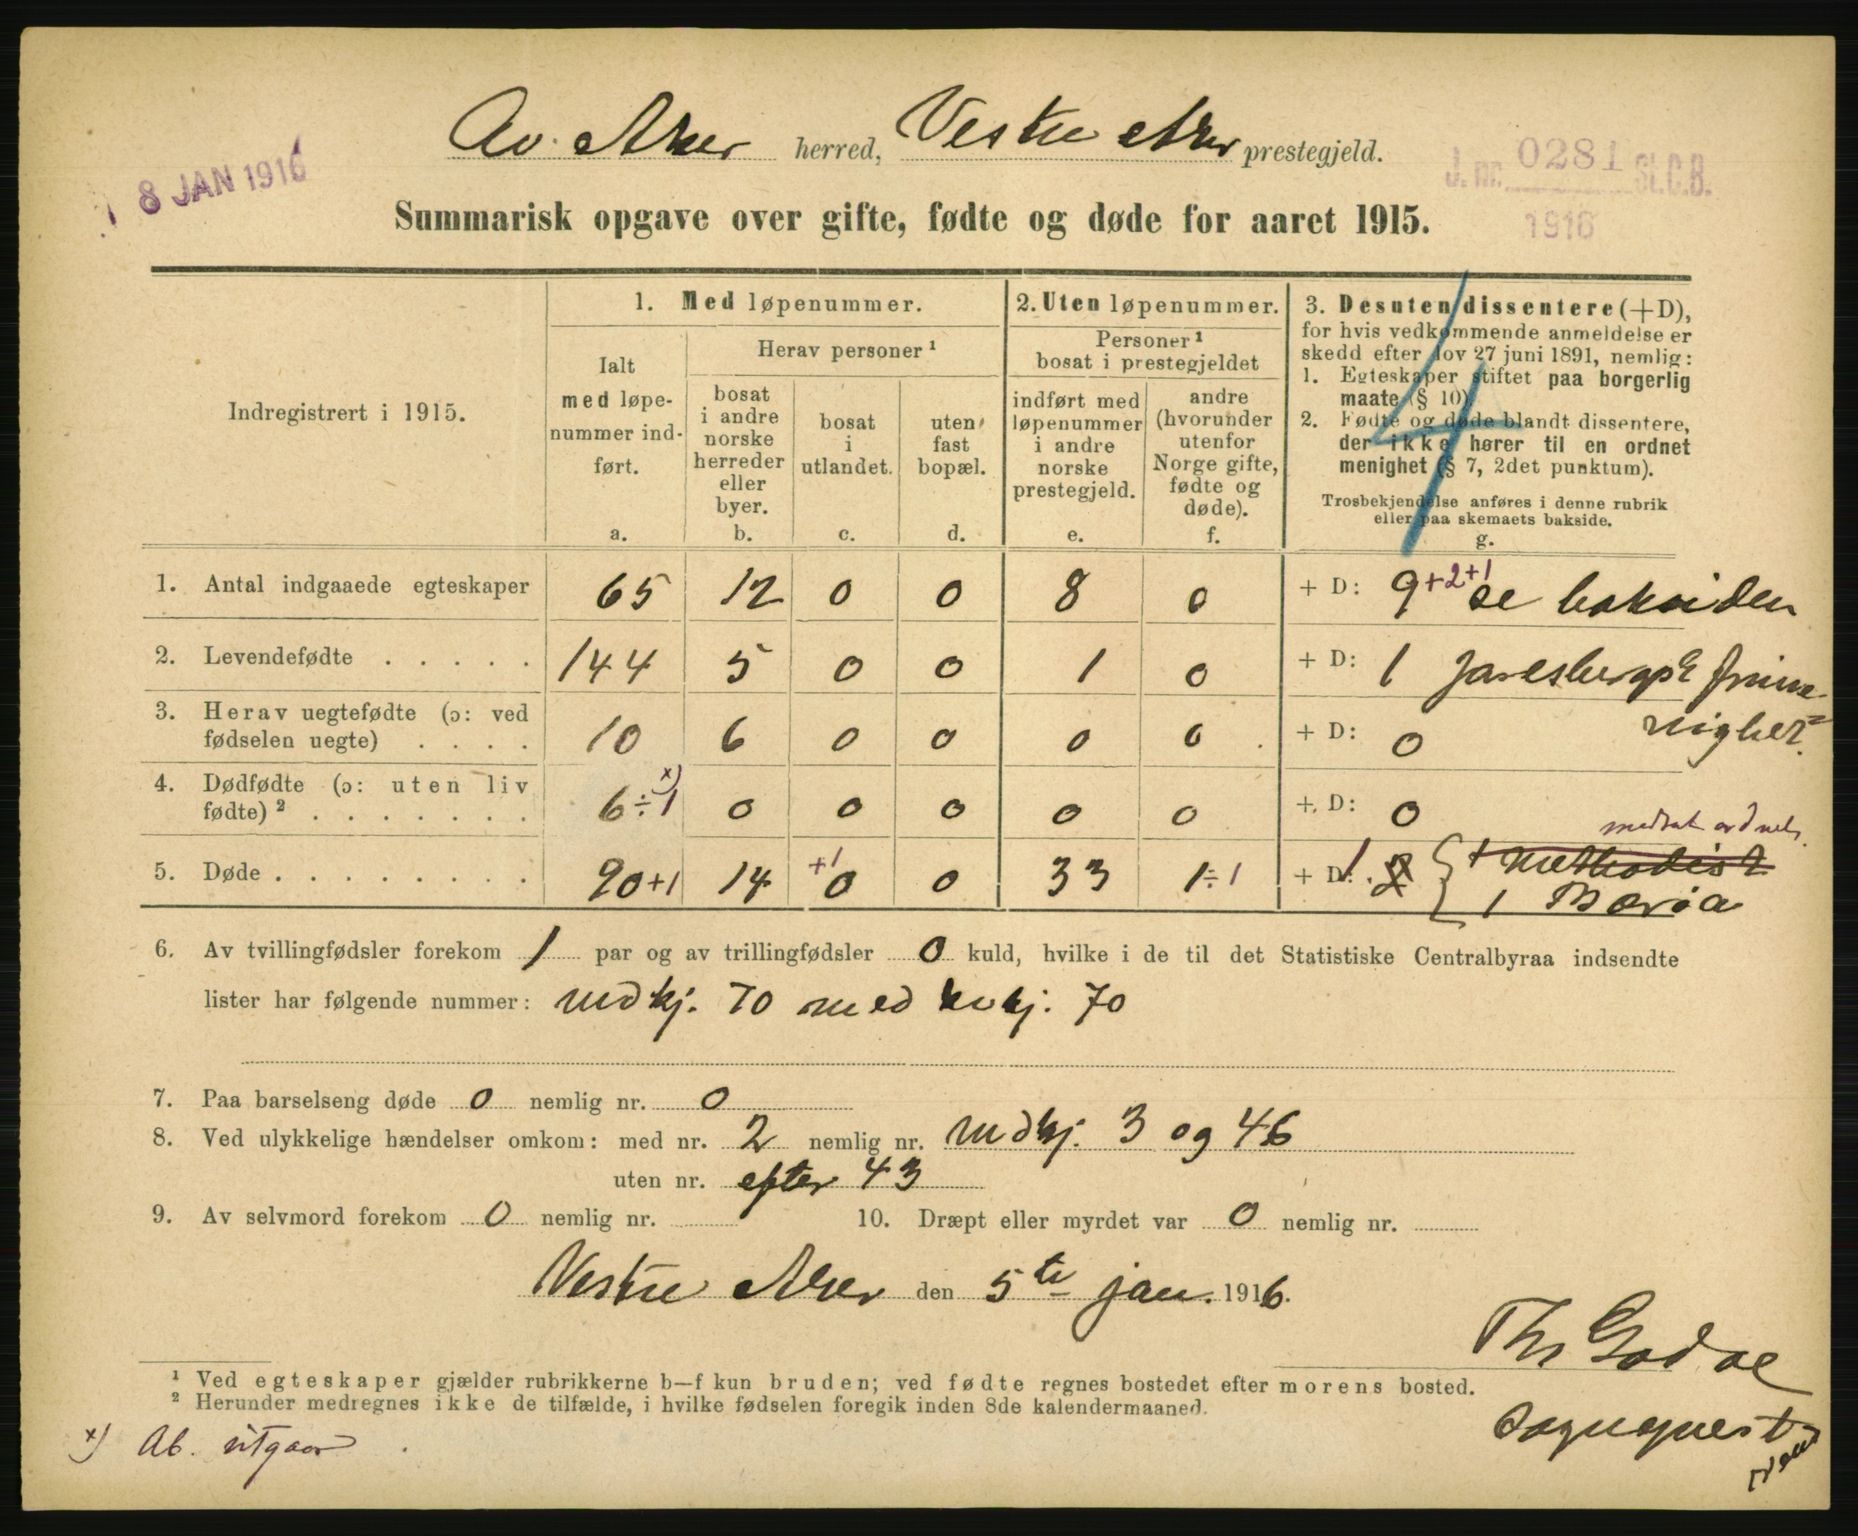 Av Aker herred, Vestre Aker prestegjeld.
8 JAN 1916
J. nr. 0281 St.C.B.
1916
Summarisk opgave over gifte, fødte og døde for aaret 1915.
Indregistrert i 1915.
1. Med løpenummer.
Ialt
med løpe-
nummer ind-
ført.
a.
Herav personer ¹
bosat
i andre
norske
herreder
eller
byer.
b.
bosat
i
utlandet.
c.
uten
fast
bopæl.
d.
2. Uten løpenummer.
Personer ¹
bosat i prestegjeldet
indført med
løpenummer
i andre
norske
prestegjeld.
e.
andre
(hvorunder
utenfor
Norge gifte,
fødte og
døde).
f.
3. Desuten dissentere (+D),
for hvis vedkommende anmeldelse er
skedd efter lov 27 juni 1891, nemlig:
1. Egteskaper stiftet paa borgerlig
maate (§ 10)
2. Fødte og døde blandt dissentere,
der ikke hører til en ordnet
menighet (§ 7, 2det punktum).
Trosbekjendelse anføres i denne rubrik
eller paa skemaets bakside.
g.
4
1. Antal indgaaede egteskaper 65 12 0 0 8 0 + D: 9 +2+1 se baksiden
2. Levendefødte . . . . . 144 5 0 0 1 0 + D: 1 Jarlsbergsk frime-
nighet.
3. Herav uegtefødte (ɔ: ved
fødselen uegte) . . . . 10 6 0 0 0 0 + D: 0
4. Dødfødte (ɔ: uten liv
fødte) ² . . . . . . . 6÷1 x) 0 0 0 0 0 + D: 0
5. Døde . . . . . . . . 90+1 14 +1 0 0 33 1÷1 + D: 1 2 1 Methodist
1 Bærøa
6. Av tvillingfødsler forekom 1 par og av trillingfødsler 0 kuld, hvilke i de til det Statistiske Centralbyraa indsendte
lister har følgende nummer: mdkj. 70 med kvkj. 70
7. Paa barselseng døde 0 nemlig nr. 0
8. Ved ulykkelige hændelser omkom: med nr. 2 nemlig nr. mdkj. 3 og 46
uten nr. efter 43
9. Av selvmord forekom 0 nemlig nr. 10. Dræpt eller myrdet var 0 nemlig nr.
Vestre Aker den 5te jan. 1916.
Th Godøe
sogneprest
¹ Ved egteskaper gjælder rubrikkerne b—f kun bruden; ved fødte regnes bostedet efter morens bosted.
² Herunder medregnes ikke de tilfælde, i hvilke fødselen foregik inden 8de kalendermaaned.
x) Ab. utgaar